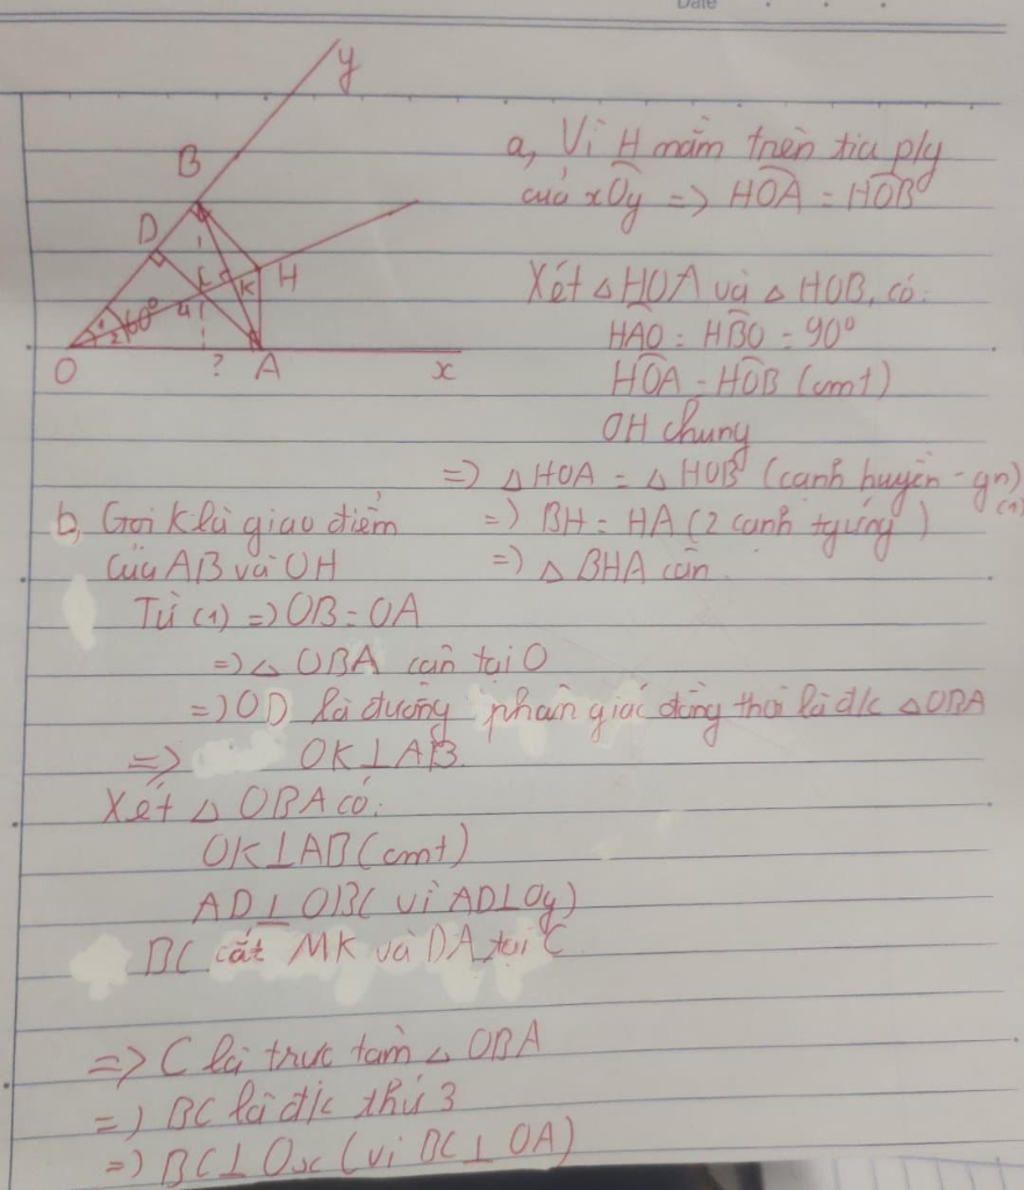 Date
y
B
D
C
K
H
60°
1
2
4
O
?
A
x
a, Vì H nằm trên tia p/g
của xOy => HOA = HOB
Xét △HOA và △HOB, có:
HAO = HBO = 90°
HOA = HOB (cmt)
OH chung
=> △HOA = △HOB (cạnh huyền - gn) (1)
=> BH = HA (2 cạnh tg ứng)
=> △BHA cân
b, Gọi K là giao điểm
của AB và OH
Từ (1) => OB = OA
=> △ OBA cân tại O
=> OD là đường phân giác đồng thời là đ/c △OBA
=> OK⊥AB
Xét △ OBA có:
OK⊥AB (cmt)
AD⊥OB( vì AD⊥Oy)
BC cắt MK và DA tại C
=> C là trực tâm △ OBA
=> BC là đ/c thứ 3
=> BC⊥Ox (vì BC⊥OA)